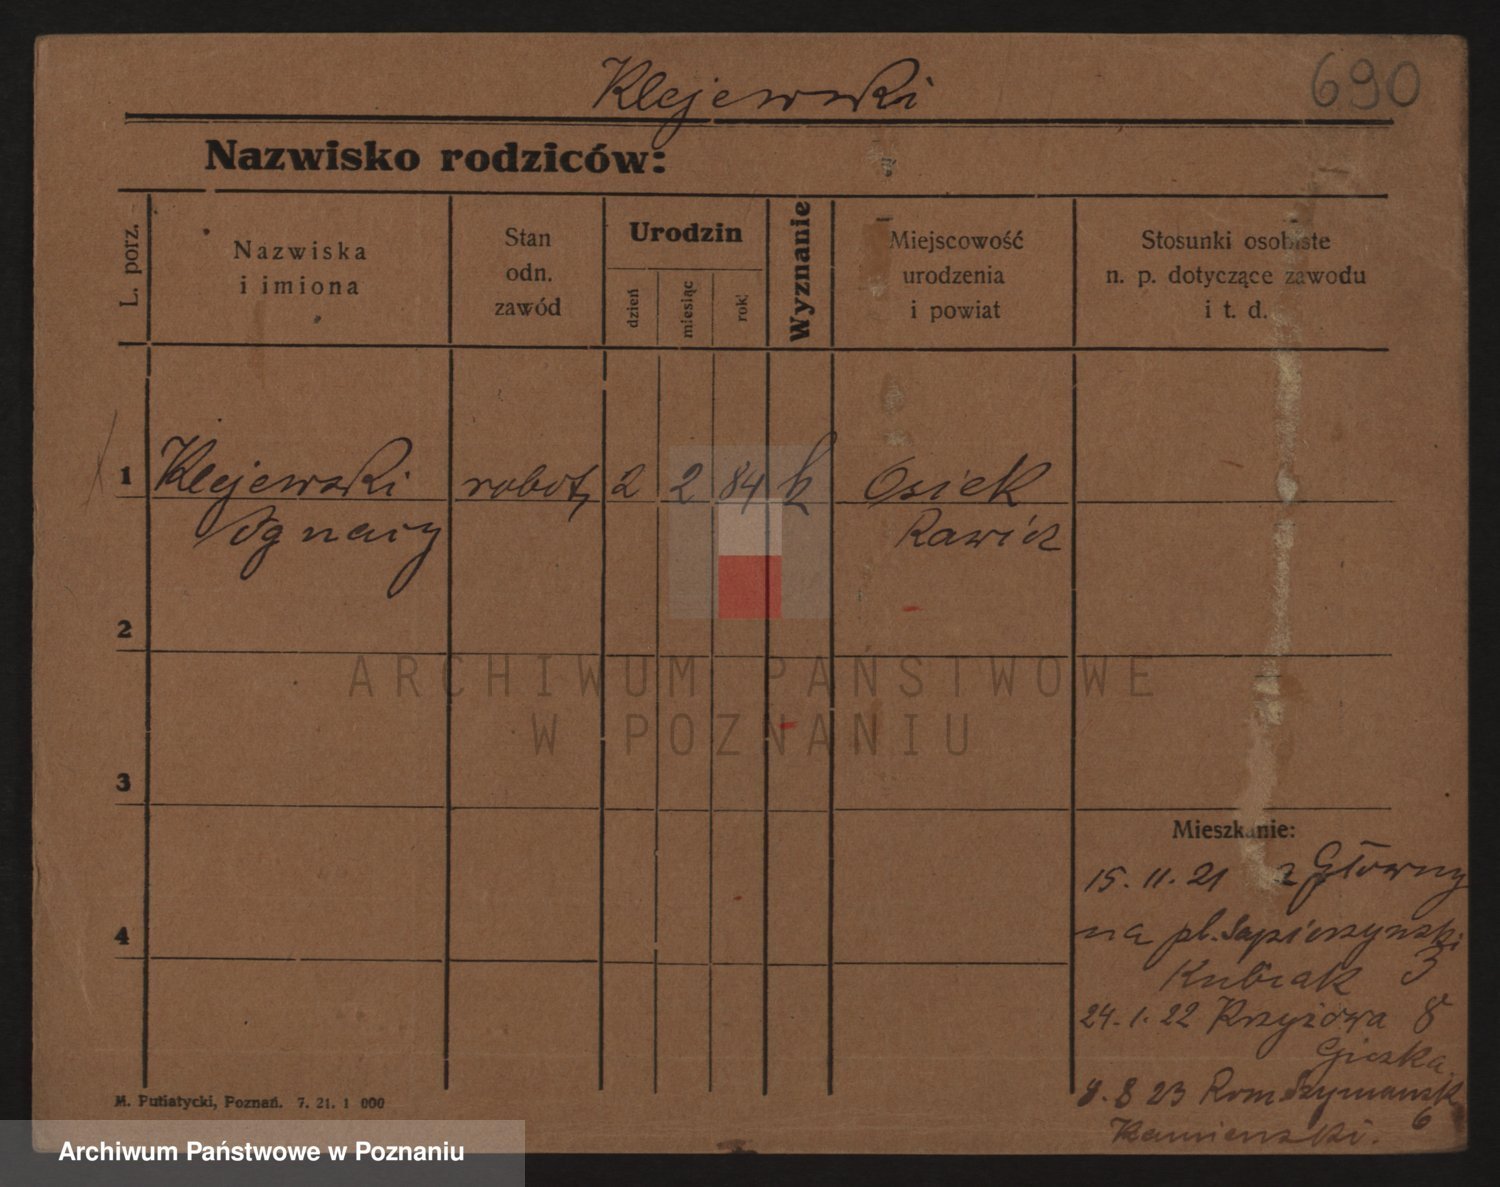 690
Klejewski
Nazwisko rodziców:
L. porz.
Nazwiska
i imiona
Stan
odn.
zawód
Urodzin
dzień
miesiąc
rok
Wyznanie
Miejscowość
urodzenia
i powiat
Stosunki osobiste
n. p. dotyczące zawodu
i t. d.
1 Klejewski robot. 2 2 84 k Osiek
Ignacy Rawicz
2
3
4
Mieszkanie:
15. 11. 21 z Główny
na pl. Sapieszynski
Kubiak 3
24. 1. 22 Krzyżowa 8
Gieszka
8. 8 23 Rom Szymansk
Kamienski. 6
M. Putiatycki, Poznań. 7. 21. 1 000
ARCHIWUM PAŃSTWOWE
W POZNANIU
Archiwum Państwowe w Poznaniu